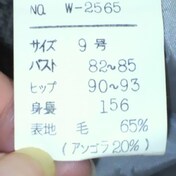 NO. W-2565
サイズ 9号
バスト 82~85
ヒップ 90~93
身長 156
表地 毛 65%
(アンゴラ20%)